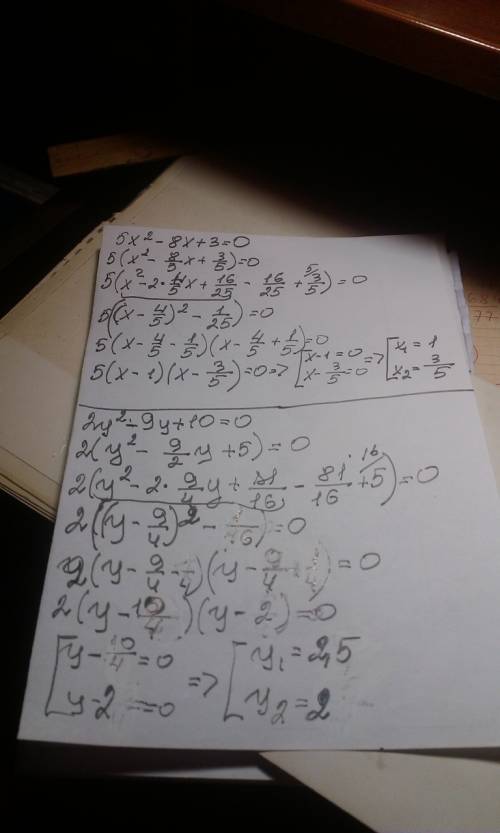 5x² - 8x + 3 = 0
5(x² - 8/5 x + 3/5) = 0
5(x² - 2·4/5 x + 16/25 - 16/25 + 3/5) = 0
5((x - 4/5)² - 1/25) = 0
5(x - 4/5 - 1/5)(x - 4/5 + 1/5) = 0
5(x - 1)(x - 3/5) = 0 => [x - 1 = 0 x - 3/5 = 0 => [x₁ = 1 x₂ = 3/5
2y² - 9y + 10 = 0
2(y² - 9/2 y + 5) = 0
2(y² - 2·9/4 y + 81/16 - 81/16 + 5) = 0
2((y - 9/4)² - 1/16) = 0
2(y - 9/4 - 1/4)(y - 9/4 ) = 0
2(y - 10/4)(y - 2) = 0
[y - 10/4 = 0 => [y₁ = 2,5
y - 2 = 0 y₂ = 2